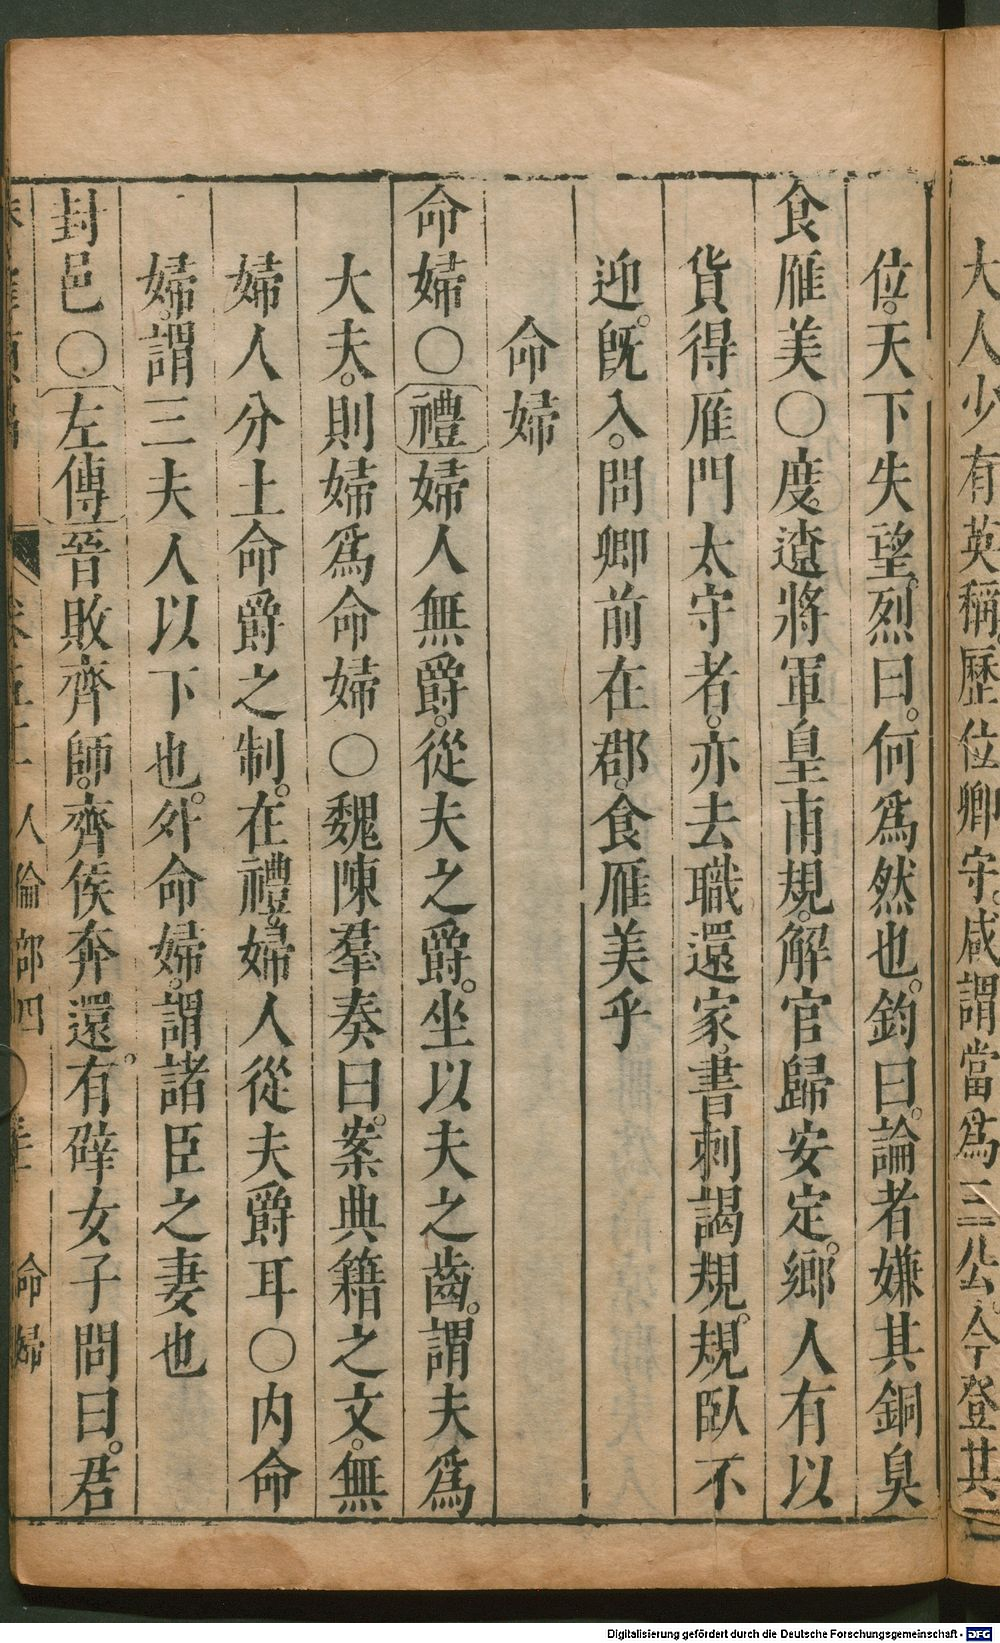 大人少有英稱歷位卿守。咸謂當爲三公。今登其
位。天下失望。烈曰。何爲然也。鈞曰。論者嫌其銅臭
食雁美〇度遼將軍皇甫規。解官歸安定。鄉人有以
貨得雁門太守者。亦去職還家。書刺謁規。規臥不
迎。旣入。問卿前在郡。食雁美乎
命婦
命婦〇禮婦人無爵。從夫之爵。坐以夫之齒。謂夫爲
大夫。則婦爲命婦〇魏陳羣奏曰。案典籍之文。無
婦人分土命爵之制。在禮。婦人從夫爵耳〇內命
婦。謂三夫人以下也。外命婦。謂諸臣之妻也
封邑〇左傳晉敗齊師。齊侯奔還。有辟女子問曰。君
人倫部四 命婦
Digitalisierung gefördert durch die Deutsche Forschungsgemeinschaft - DFG